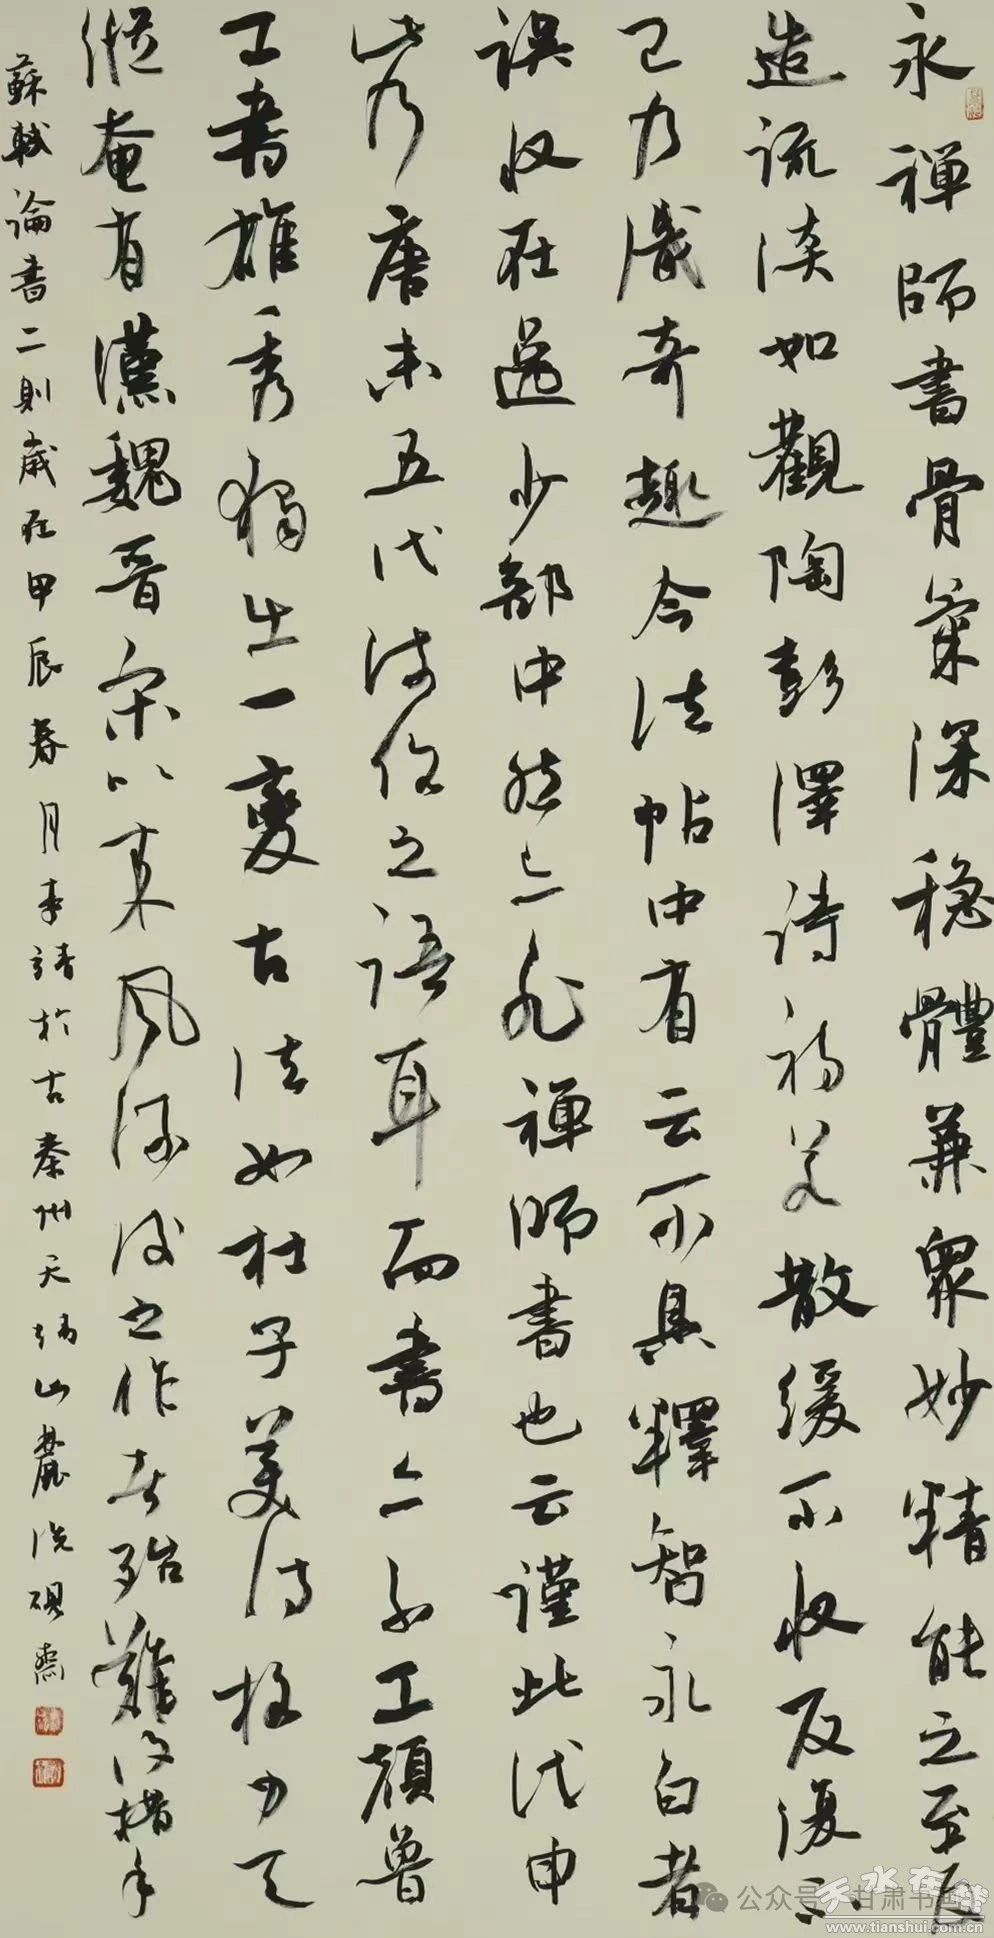 永禪師書骨氣深穩體兼眾妙精能之至反
造疏淡如觀陶彭澤詩初若散緩不收反復不
已乃識奇趣今法帖中有云不具釋智永白者
誤收在逸少部中然亦非禪師書也云謹此代申
此乃唐末五代流俗之語耳而書亦不工顏魯
工書雄秀獨出一變古法如杜子美詩格力天
縱奄有漢魏晉宋以來風流後之作者殆難復措手
蘇軾論書二則歲在甲辰春月李靖於古秦州天靖山麓洗硯齋
公众号 甘肃书
天水在线
www.tianshui.com.cn